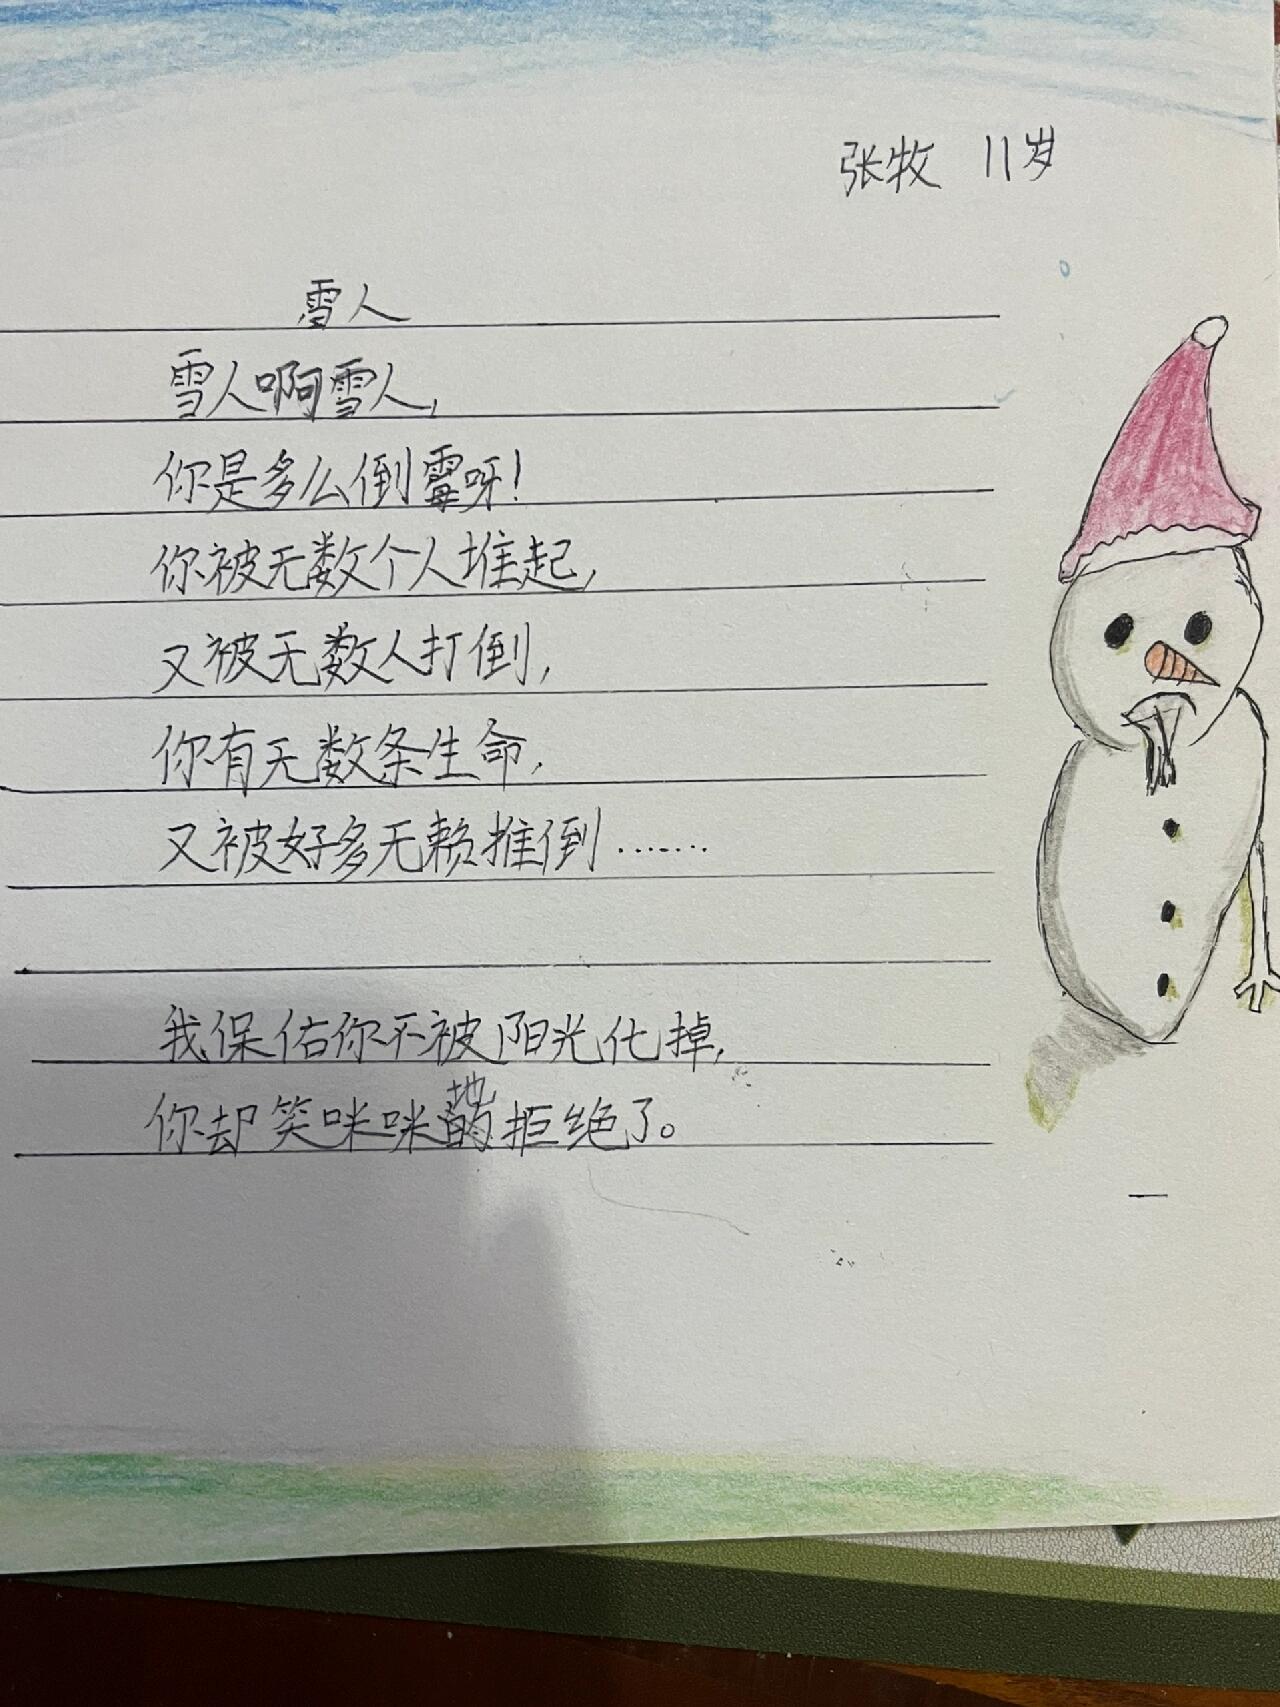 张牧 11岁
雪人
雪人啊雪人,
你是多么倒霉呀!
你被无数个人堆起,
又被无数人打倒,
你有无数条生命,
又被好多无赖推倒……
我保佑你不被阳光化掉,
你却笑咪咪地拒绝了。